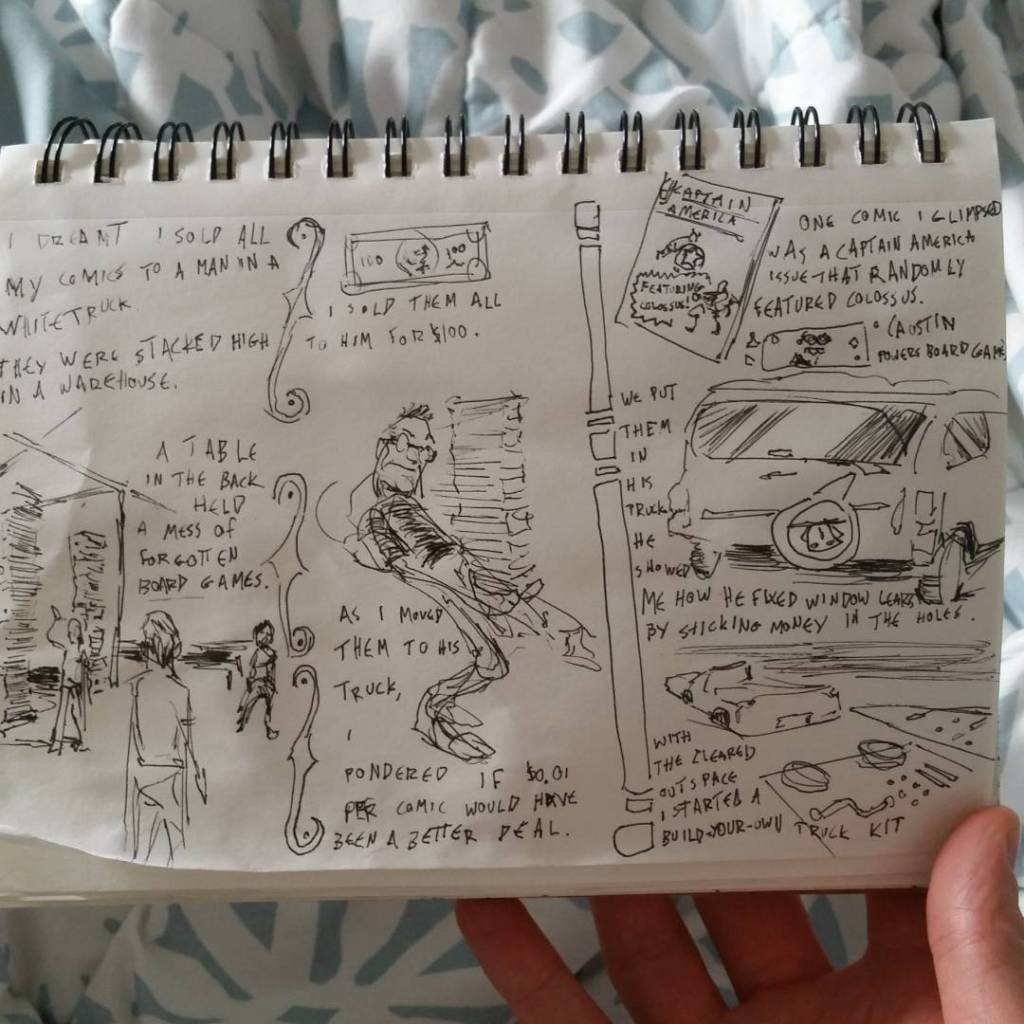 I DREAMT I SOLD ALL
MY COMICS TO A MAN IN A
WHITE TRUCK.
THEY WERE STACKED HIGH
IN A WAREHOUSE.
A TABLE
IN THE BACK
HELD
A MESS OF
FORGOTTEN
BOARD GAMES.
100 100
I SOLD THEM ALL
TO HIM FOR $100.
AS I MOVED
THEM TO HIS
TRUCK,
I
PONDERED IF $0.01
PER COMIC WOULD HAVE
BEEN A BETTER DEAL.
KAPTAIN
AMERICA
FEATURING
COLOSSUS!
ONE COMIC I GLIMPSED
WAS A CAPTAIN AMERICA
ISSUE THAT RANDOMLY
FEATURED COLOSSUS.
(AUSTIN
POWERS BOARD GAME
WE PUT
THEM
IN
HIS
TRUCK
HE
SHOWED
ME HOW HE FIXED WINDOW LEAKS
BY STICKING MONEY IN THE HOLES.
WITH
THE CLEARED
OUT SPACE
I STARTED A
BUILD-YOUR-OWN TRUCK KIT